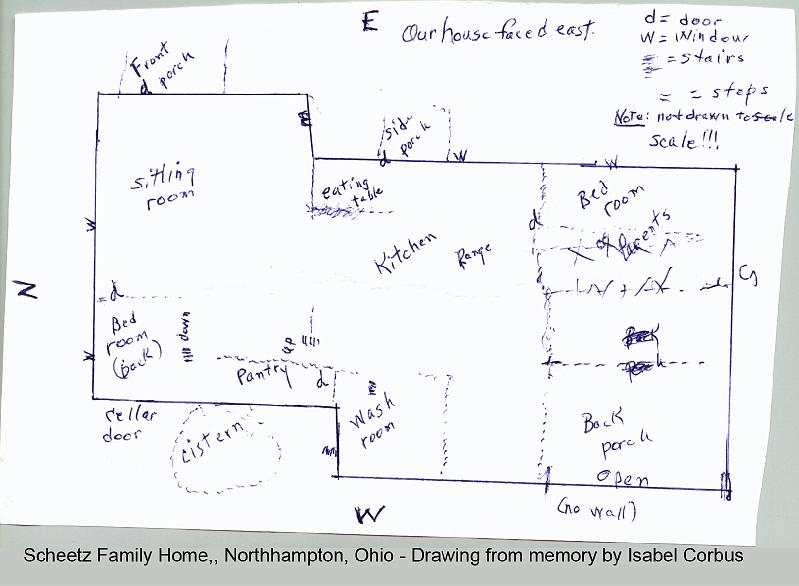 E
Our house faced east.
d = door
W = Window
= stairs
= = steps
Note: not drawn to scale
scale!!!
Front
porch
d
side
porch
d
W
W
sitting
room
eating
table
Bed
room
of Parents
d
Kitchen
Range
W
N
S
d
Bed
room
(back)
down
up
W
Pantry
d
Wash
room
Back
porch
Back
porch
Open
(no wall)
Cellar
door
Cistern
W
Scheetz Family Home,, Northhampton, Ohio - Drawing from memory by Isabel Corbus